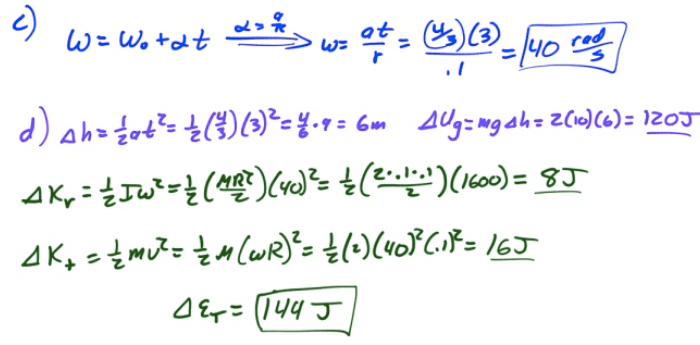 c) ω = ω₀ + αt  α = a/r ⟹  ω = at/r = (4/3)(3)/.1 = 40 rad/s
d) Δh = ½at² = ½(4/3)(3)² = 4/6·9 = 6m  ΔUg = mgΔh = 2(10)(6) = 120J
ΔKr = ½Iω² = ½(MR²/2)(40)² = ½(2·.1·.1/2)(1600) = 8J
ΔKt = ½mv² = ½M(ωR)² = ½(2)(40)²(.1)² = 16J
ΔET = 144 J